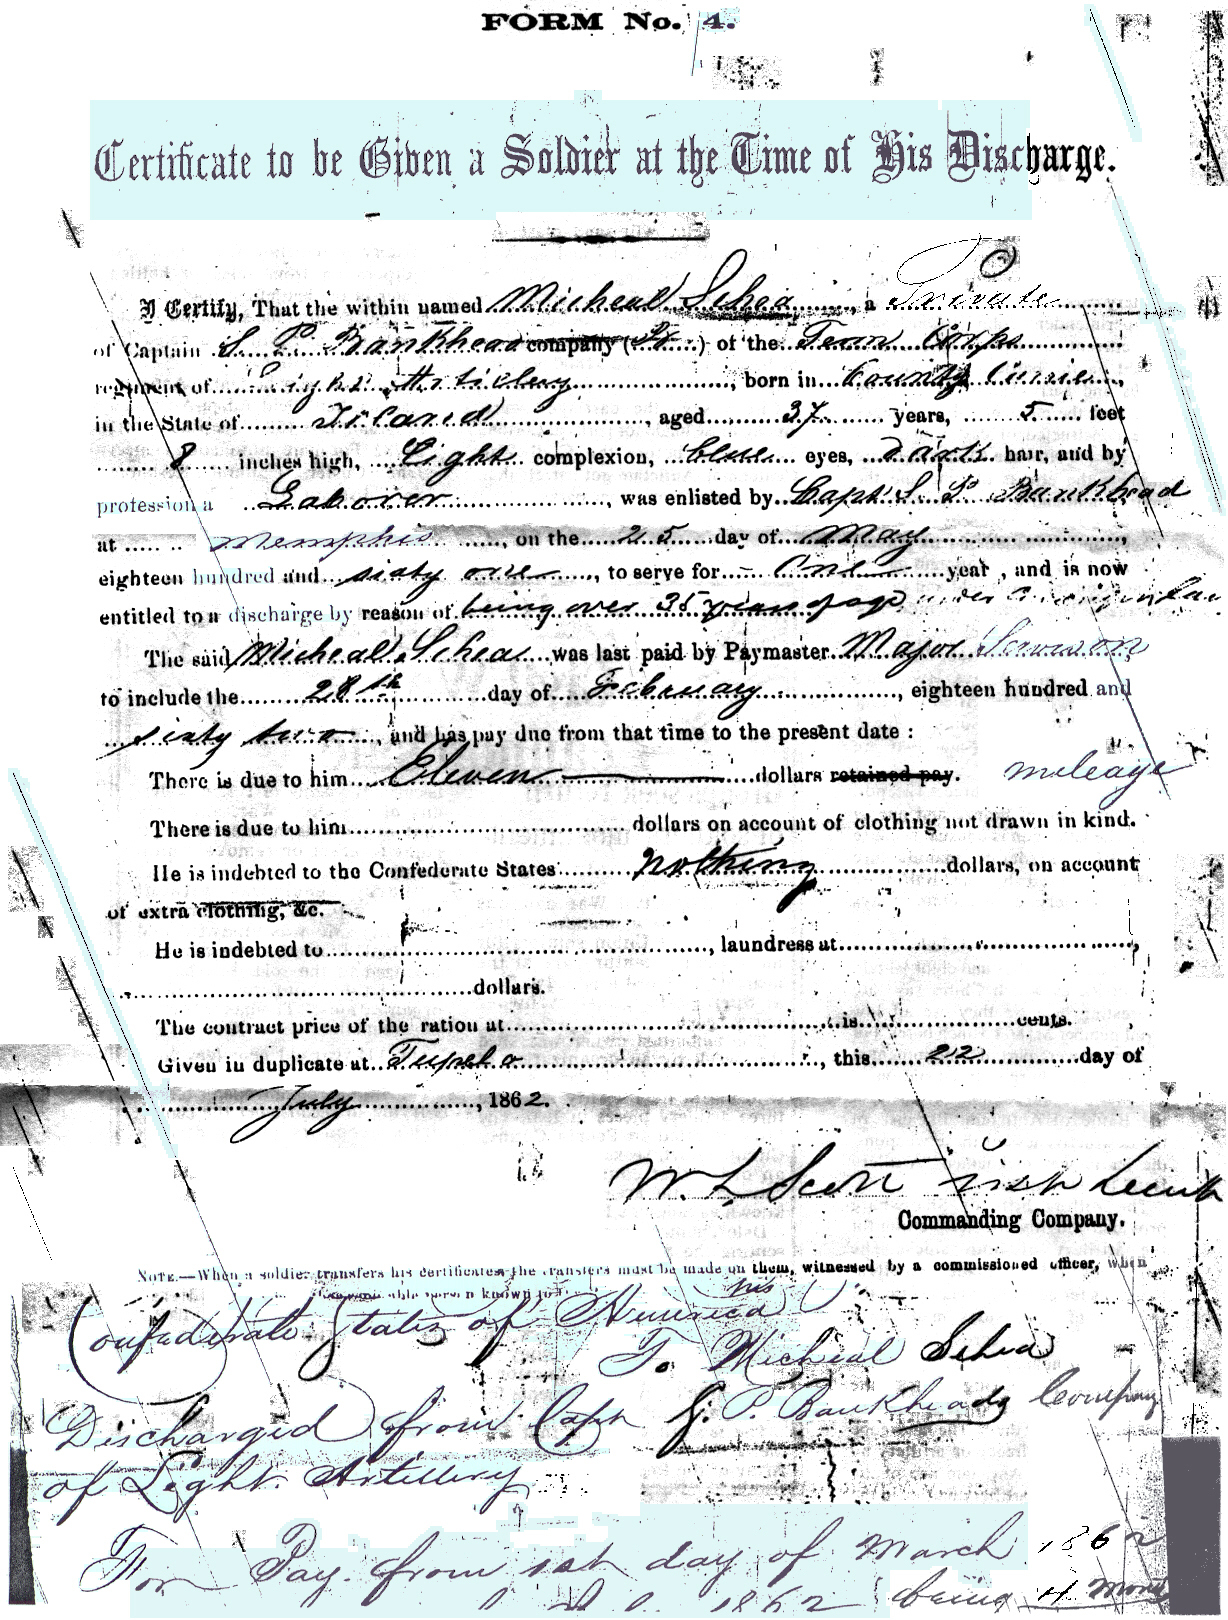 FORM No. 4.
Certificate to be Given a Soldier at the Time of His Discharge.
I Certify, That the within named Micheal Schea, a Private
of Captain S. P. Bankhead company ( ) of the Tenn Corps
regiment of Light Artillery, born in County
in the State of Ireland, aged 37 years, 5 feet
8 inches high, Light complexion, blue eyes, dark hair, and by
profession a Laborer, was enlisted by Capt S. P. Bankhead
at Memphis, on the 25 day of May,
eighteen hundred and sixty one, to serve for One year, and is now
entitled to a discharge by reason of being over 35 years of age under
The said Micheal Schea was last paid by Paymaster Major
to include the 28th day of February, eighteen hundred and
sixty two, and has pay due from that time to the present date:
There is due to him Eleven dollars retained pay. mileage
There is due to him dollars on account of clothing not drawn in kind.
He is indebted to the Confederate States nothing dollars, on account
of extra clothing, &c.
He is indebted to, laundress at,
dollars.
The contract price of the ration at is cents.
Given in duplicate at Tupelo, this 22 day of
July, 1862.
W. L. Scott
Commanding Company.
NOTE.—When a soldier transfers his certificates the transfers must be made on them, witnessed by a commissioned officer, when
person known to
Confederate States of America
To Micheal Schea
Discharged from Capt S. P. Bankheads Company
of Light Artillery
For Pay from 1st day of March 1862
1862 being 4